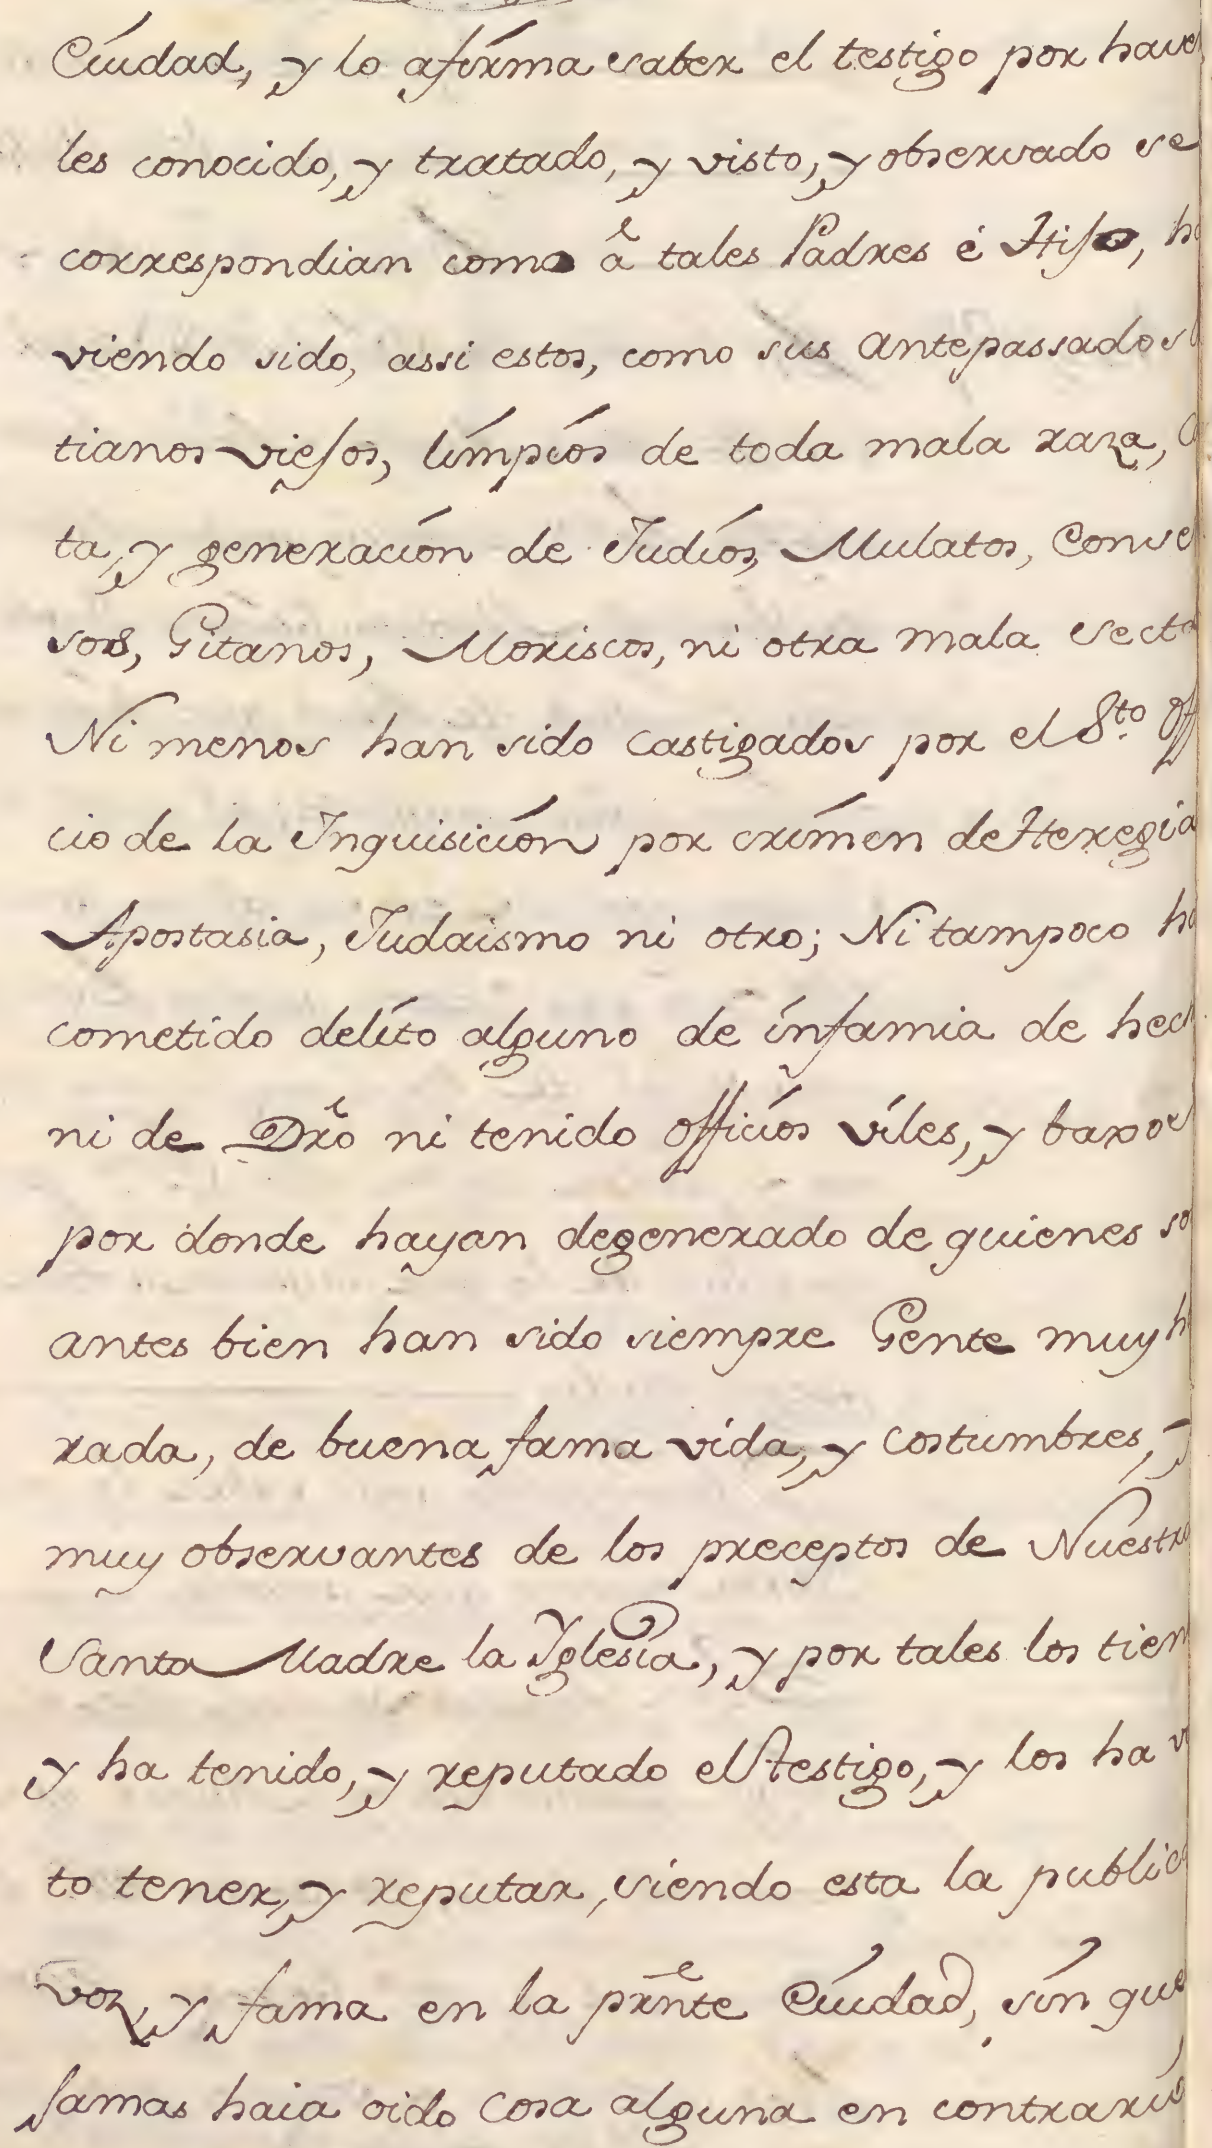 Ciudad, y lo afirma saber el testigo por haver
les conocido, y tratado, y visto, y observado se
correspondian como â tales Padres é Hijo, ha
viendo sido, assi estos, como sus antepassados
tianos viejos, limpios de toda mala raza,
ta, y generación de Judíos, Mulatos, Conve
sos, Gitanos, Moriscos, ni otra mala secta
Ni menos han sido castigados por el Sto. Off
cio de la Inquisición por crímen de Heregia
Apostasia, Judaismo ni otro; Ni tampoco ha
cometido delito alguno de infamia de hech
ni de Dro ni tenido officios viles, y baxos
por donde hayan degenerado de quienes so
antes bien han sido siempre Gente muy h
rada, de buena fama vida, y costumbres, y
muy observantes de los preceptos de Nuestra
Santa Madre la Iglesia, y por tales los tien
y ha tenido, y reputado el testigo, y los ha v
to tener, y reputar, siendo esta la public
voz, y fama en la prnte Ciudad, sin que
jamas haia oido cosa alguna en contrario